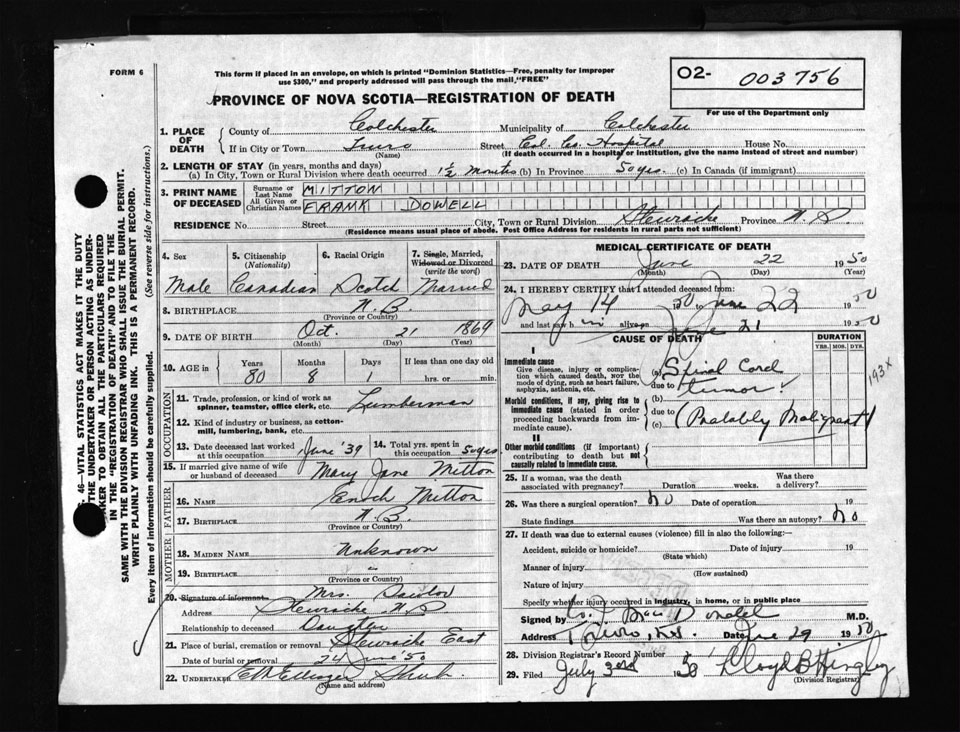 FORM 6
This form if placed in an envelope, on which is printed "Dominion Statistics—Free, penalty for improper
use $300," and properly addressed will pass through the mail, "FREE"
O2- 003756
For use of the Department only
PROVINCE OF NOVA SCOTIA—REGISTRATION OF DEATH
1. PLACE OF DEATH { County of Colchester Municipality of Colchester
If in City or Town Truro (Name) Street Col. Co. Hospital House No.
(If death occurred in a hospital or institution, give the name instead of street and number)
2. LENGTH OF STAY (in years, months and days)
(a) In City, Town or Rural Division where death occurred 1½ Months (b) In Province 50 yrs. (c) In Canada (if immigrant)
3. PRINT NAME OF DECEASED { Surname or Last Name MITTON
All Given or Christian Names FRANK DOWELL
RESIDENCE No. Street City, Town or Rural Division Province N.S.
(Residence means usual place of abode. Post Office Address for residents in rural parts not sufficient)
4. Sex 5. Citizenship (Nationality) 6. Racial Origin 7. Single, Married, Widowed or Divorced (write the word)
Male Canadian Scotch Married
8. BIRTHPLACE N.B.
(Province or Country)
9. DATE OF BIRTH Oct. 21 1869
(Month) (Day) (Year)
10. AGE in Years Months Days If less than one day old
80 8 1 hrs. or min.
OCCUPATION
11. Trade, profession, or kind of work as spinner, teamster, office clerk, etc. Lumberman
12. Kind of industry or business, as cotton-mill, lumbering, bank, etc.
13. Date deceased last worked at this occupation June '39 14. Total yrs. spent in this occupation 50 yrs
15. If married give name of wife or husband of deceased Mary Jane Mitton
FATHER
16. NAME Enoch Mitton
17. BIRTHPLACE N.B.
(Province or Country)
MOTHER
18. MAIDEN NAME Unknown
19. BIRTHPLACE "
(Province or Country)
20. Signature of informant Mrs.
Address N.S.
Relationship to deceased Daughter
21. Place of burial, cremation or removal East
Date of burial or removal 24 June '50
22. UNDERTAKER
(Name and address)
MEDICAL CERTIFICATE OF DEATH
23. DATE OF DEATH June 22 1950
(Month) (Day) (Year)
24. I HEREBY CERTIFY that I attended deceased from
May 14 50 to June 22 1950
and last saw h im alive on June 21 1950
CAUSE OF DEATH DURATION
YRS. MOS. DYS.
I
Immediate cause
Give disease, injury or complication which caused death, NOT the mode of dying, such as heart failure, asphyxia, asthenia, etc.
(a) Spinal Cord
due to tumor
193X
Morbid conditions, if any, giving rise to immediate cause (stated in order proceeding backwards from immediate cause).
(b)
due to
(c) (Probably Malignant)
II
Other morbid conditions (if important) contributing to death but not causally related to immediate cause.
25. If a woman, was the death associated with pregnancy? Duration weeks. Was there a delivery?
26. Was there a surgical operation? no Date of operation 19
State findings Was there an autopsy? No
27. If death was due to external causes (violence) fill in also the following:—
Accident, suicide or homicide? Date of injury 19
(State which)
Manner of injury
(How sustained)
Nature of injury
Specify whether injury occurred in industry, in home, or in public place
Signed by M.D.
Address Truro, N.S. Date June 29 1950
28. Division Registrar's Record Number
29. Filed July 3rd 1950 Lloyd B Hingley
(Division Registrar)
46 VITAL STATISTICS ACT MAKES IT THE DUTY
THE UNDERTAKER OR PERSON ACTING AS UNDER-
TAKER TO OBTAIN ALL THE PARTICULARS REQUIRED
IN THE "REGISTRATION OF DEATH" AND TO FILE THE
SAME WITH THE DIVISION REGISTRAR WHO SHALL ISSUE THE BURIAL PERMIT.
WRITE PLAINLY WITH UNFADING INK. THIS IS A PERMANENT RECORD.
Every item of information should be carefully supplied. (See reverse side for instructions.)